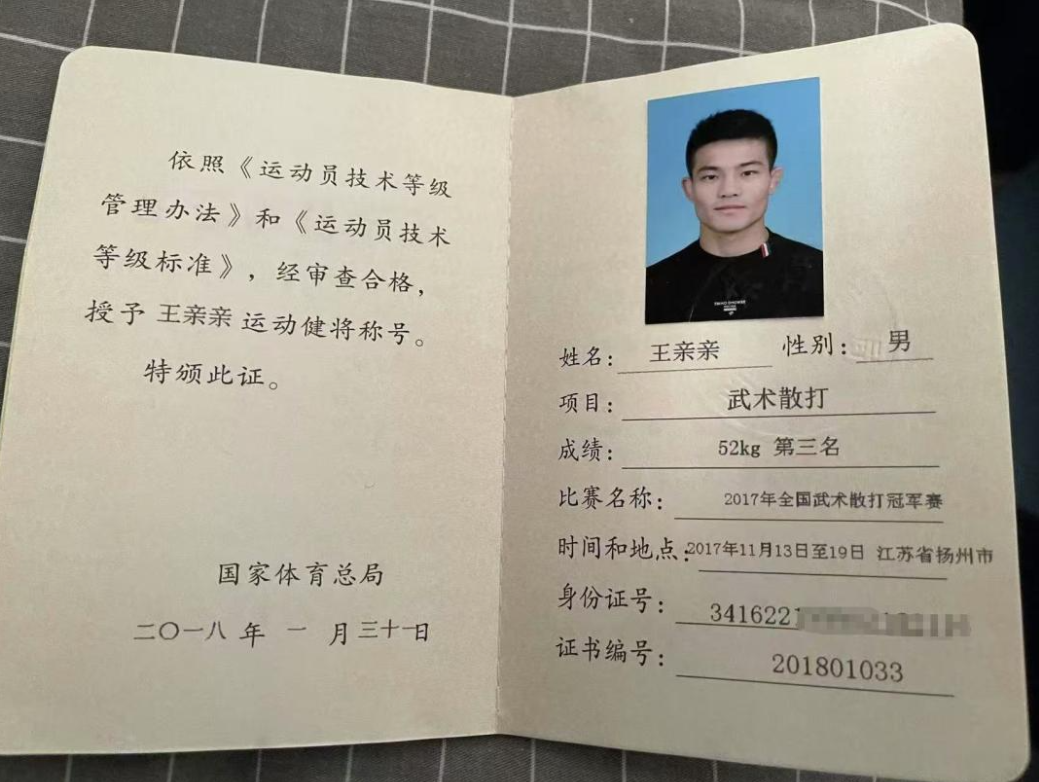 依照《运动员技术等级
管理办法》和《运动员技术
等级标准》，经审查合格，
授予 王亲亲 运动健将称号。
特颁此证。
国家体育总局
二〇一八 年 一 月 三十一日
姓名： 王亲亲 性别： 男
项目： 武术散打
成绩： 52kg 第三名
比赛名称： 2017年全国武术散打冠军赛
时间和地点：2017年11月13日至19日 江苏省扬州市
身份证号： 3416221
证书编号： 201801033